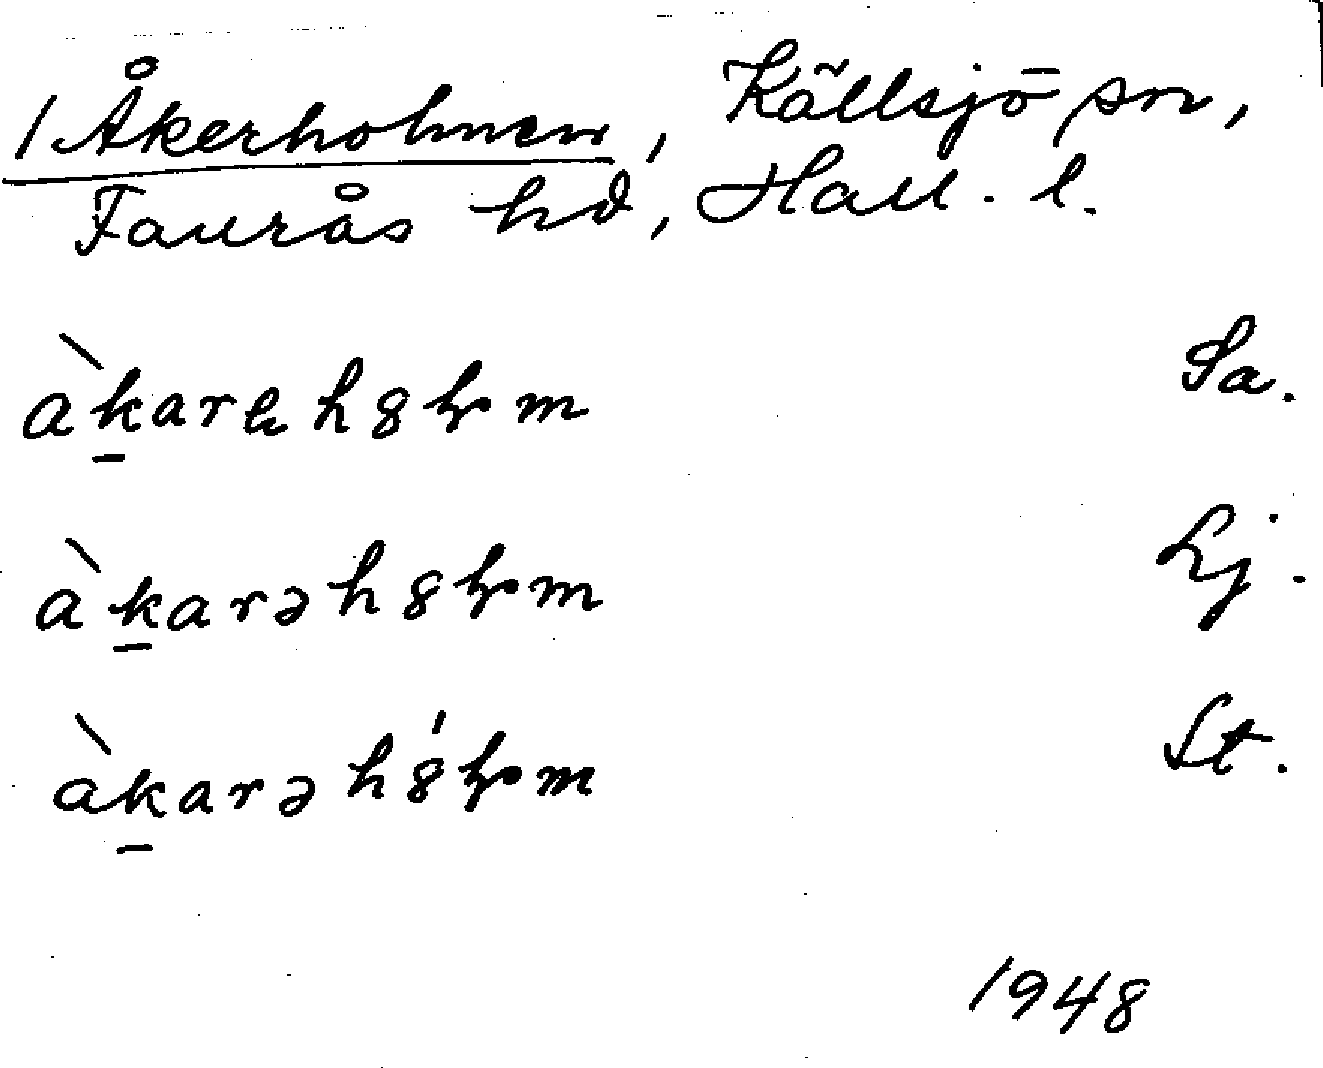 /Åkerholmen, Källsjö sn,
Faurås hd, Hall. l.
àkarəhȣlm Sa.
àkarəhȣlm Lj.
àkarəhȣ́lm St.
1948